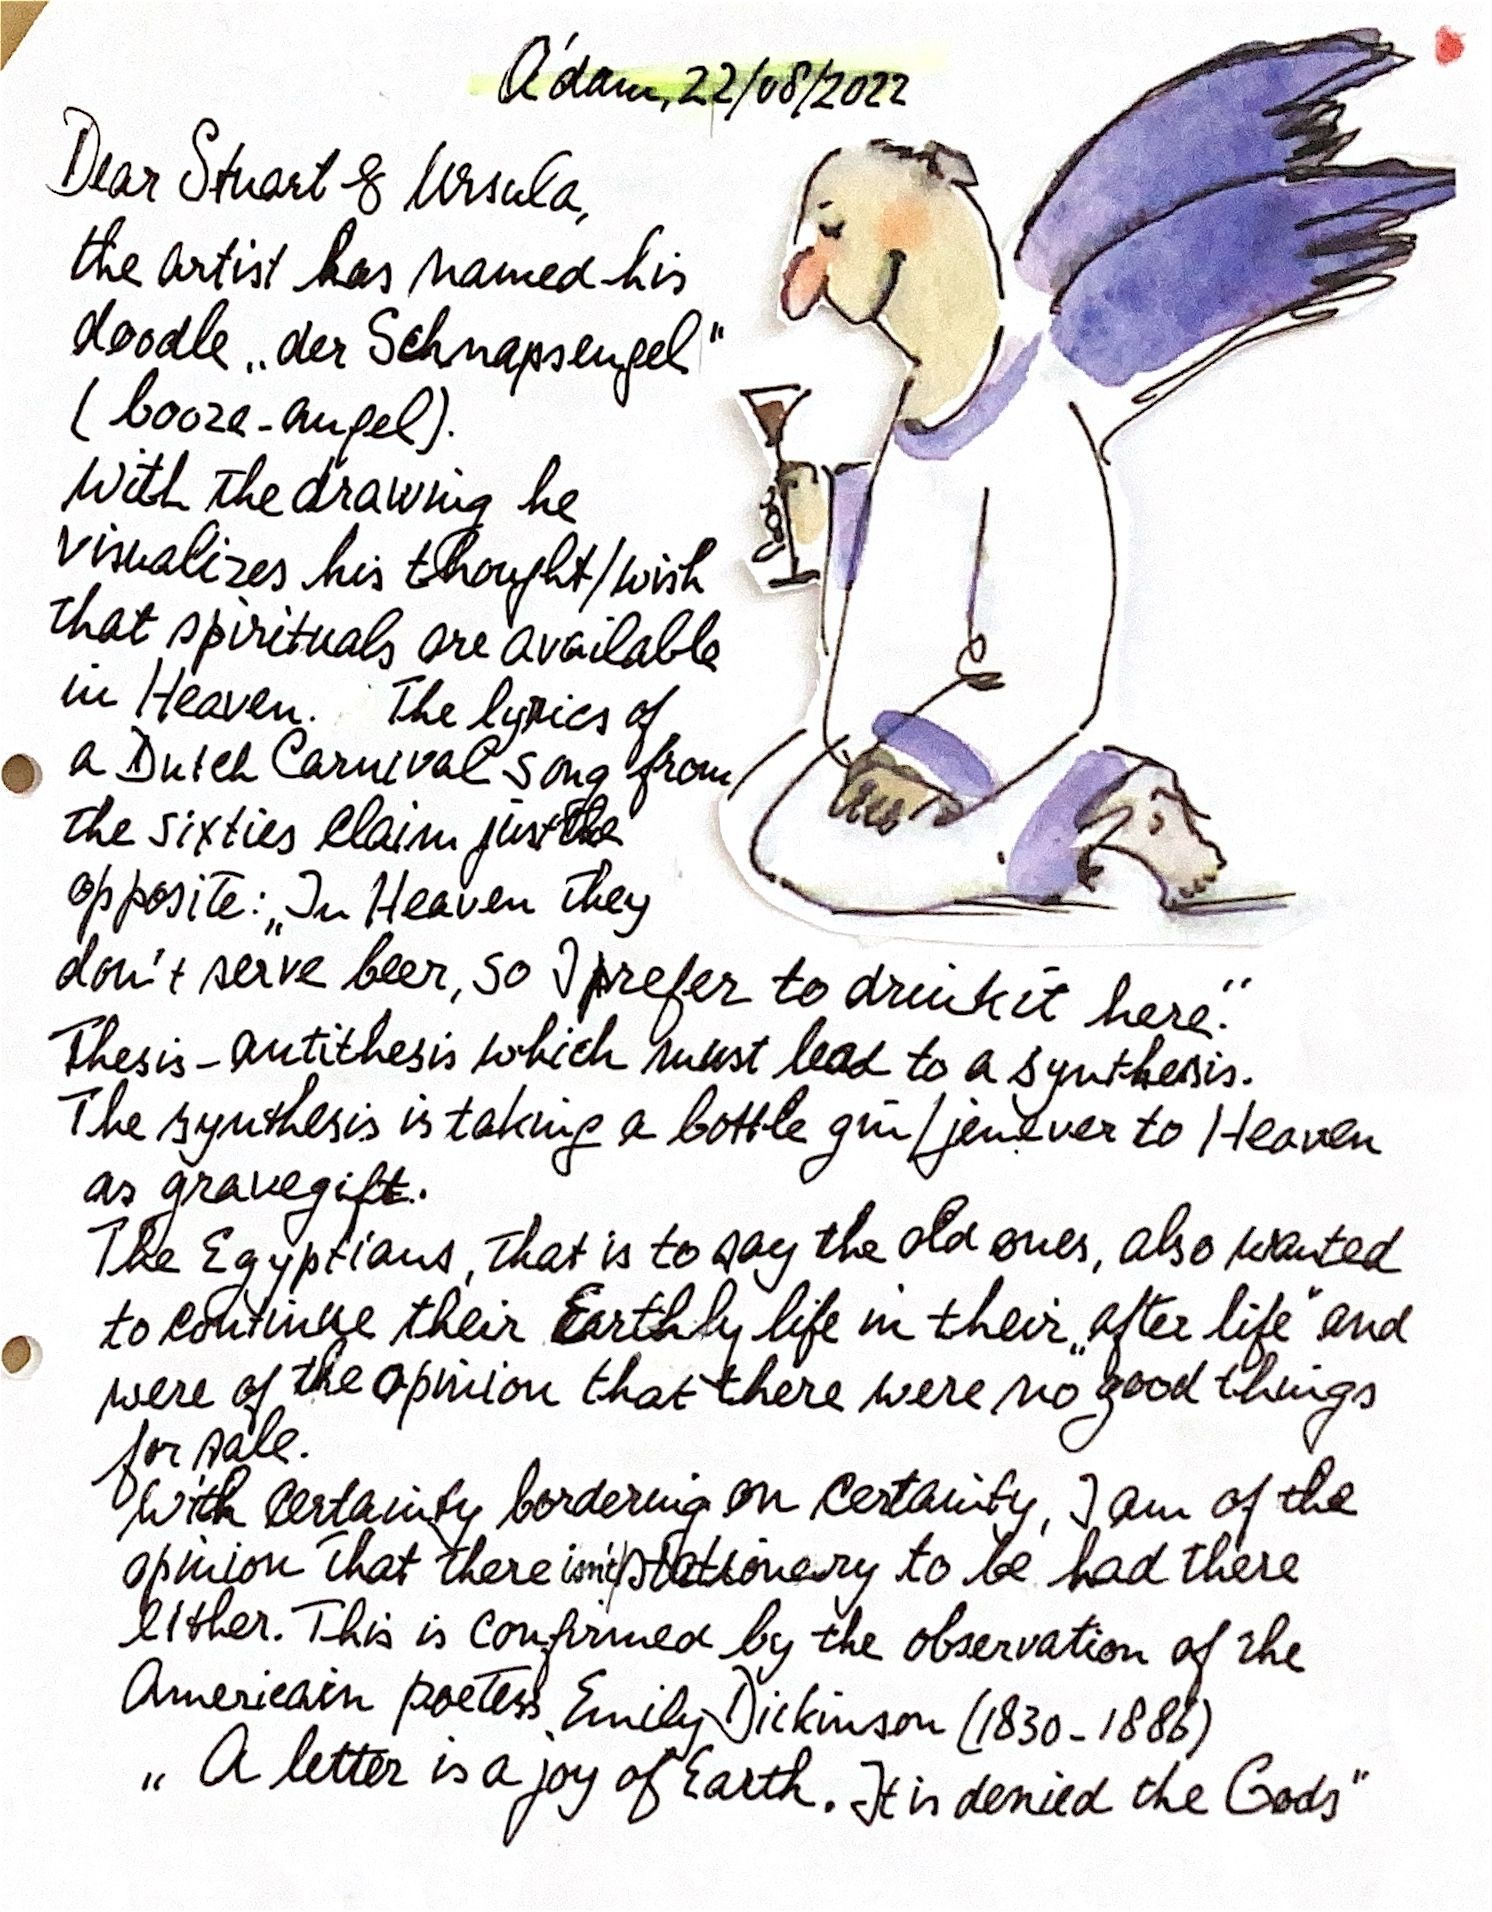 A'dam, 22/08/2022
Dear Stuart & Ursula,
the artist has named his
doodle „der Schnapsengel"
(booze-angel).
With the drawing he
visualizes his thought/wish
that spirituals are available
in Heaven. The lyrics of
a Dutch Carnival song from
the sixties claim just the
opposite: „In Heaven they
don't serve beer, so I prefer to drink it here."
Thesis-antithesis which must lead to a synthesis.
The synthesis is taking a bottle gin/jenever to Heaven
as gravegift.
The Egyptians, that is to say the old ones, also wanted
to continue their Earthly life in their „after life" and
were of the opinion that there were no good things
for sale.
With certainty bordering on certainty, I am of the
opinion that there isn't stationary to be had there
either. This is confirmed by the observation of the
Americain poetess Emily Dickinson (1830-1886)
„A letter is a joy of Earth. It is denied the Gods"